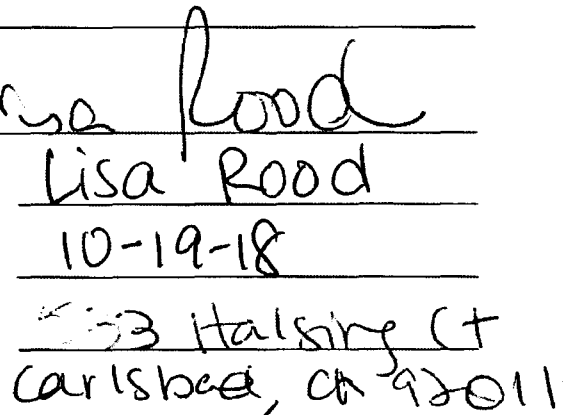 Rood
Lisa Rood
10-19-18
Halsing Ct
Carlsbad, CA 92011